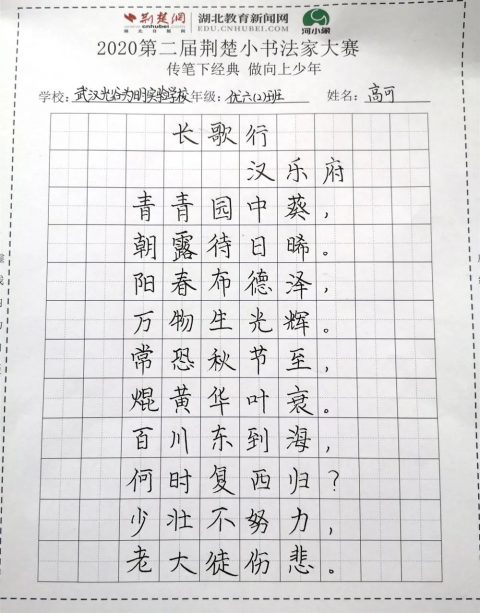 荆楚网 湖北教育新闻网 河小象
cnhubei.com EDU.CNHUBEI.COM
2020第二届荆楚小书法家大赛
传笔下经典 做向上少年
学校：武汉光谷为明实验学校 年级：优六(2)班 姓名：高可
长歌行
汉乐府
青青园中葵，
朝露待日晞。
阳春布德泽，
万物生光辉。
常恐秋节至，
焜黄华叶衰。
百川东到海，
何时复西归？
少壮不努力，
老大徒伤悲。